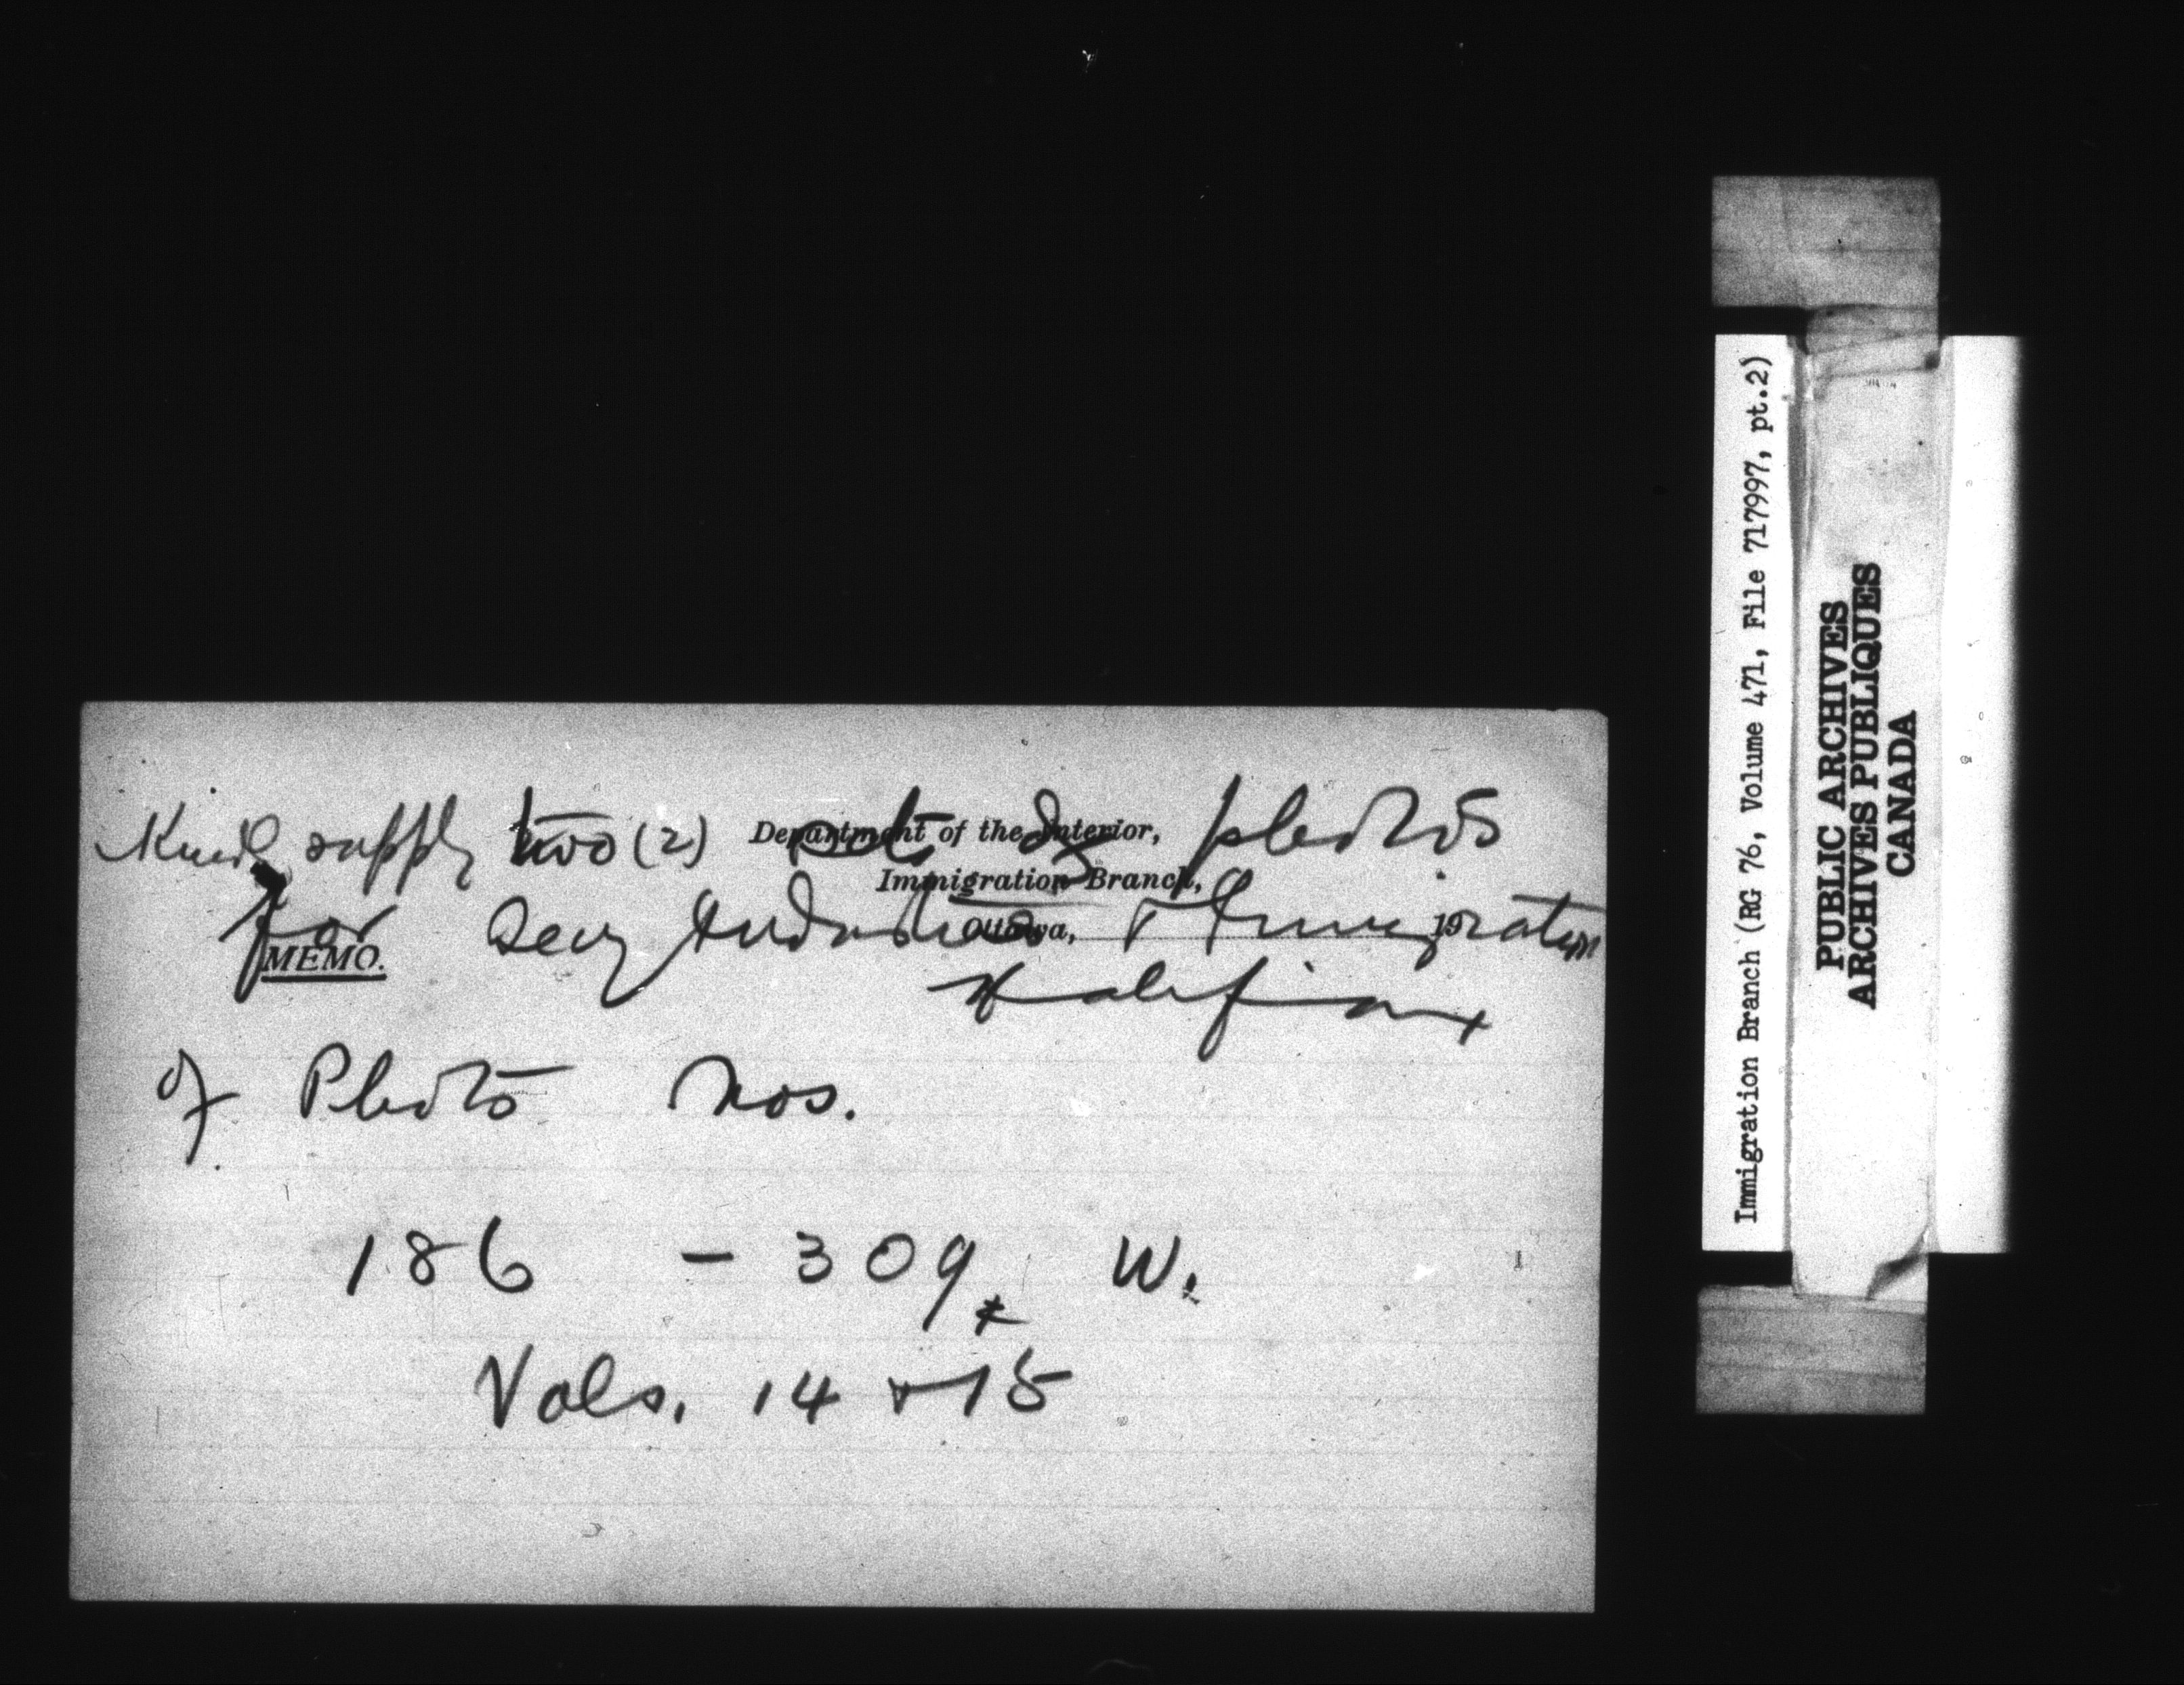 Department of the Interior,
Immigration Branch,
Ottawa, 19
MEMO.
Kindly supply two (2) sets of photos
for Secy Industries & Immigration
Halifax
of Photo Nos.
186 - 309 W.
Vols. 14 & 15
Immigration Branch (RG 76, Volume 471, File 717997, pt.2)
PUBLIC ARCHIVES
ARCHIVES PUBLIQUES
CANADA